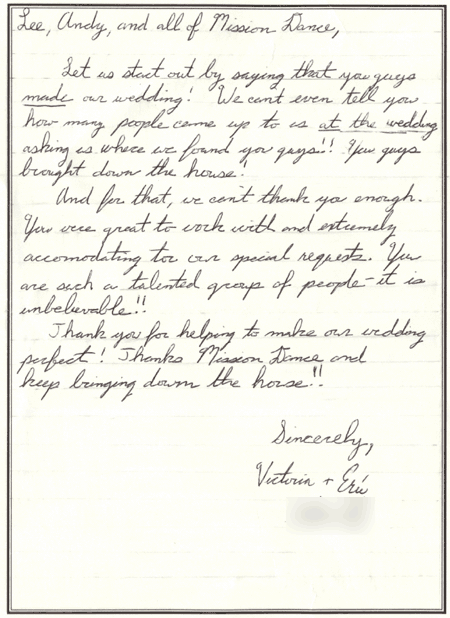 Lee, Andy, and all of Mission Dance,
Let us start out by saying that you guys
made our wedding! We can't even tell you
how many people came up to us at the wedding
asking us where we found you guys!! You guys
brought down the house!
And for that, we can't thank you enough.
You were great to work with and extremely
accomodating for our special requests. You
are such a talented group of people - it is
unbelievable!!
Thank you for helping to make our wedding
perfect! Thanks Mission Dance and
keep bringing down the house!!
Sincerely,
Victoria + Eric